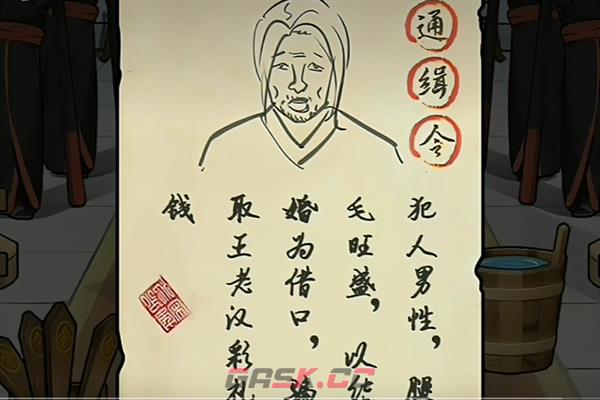 通缉令
犯人男性，腿
毛旺盛，以结
婚为借口，骗
取王老汉彩礼
钱
GASK.CC